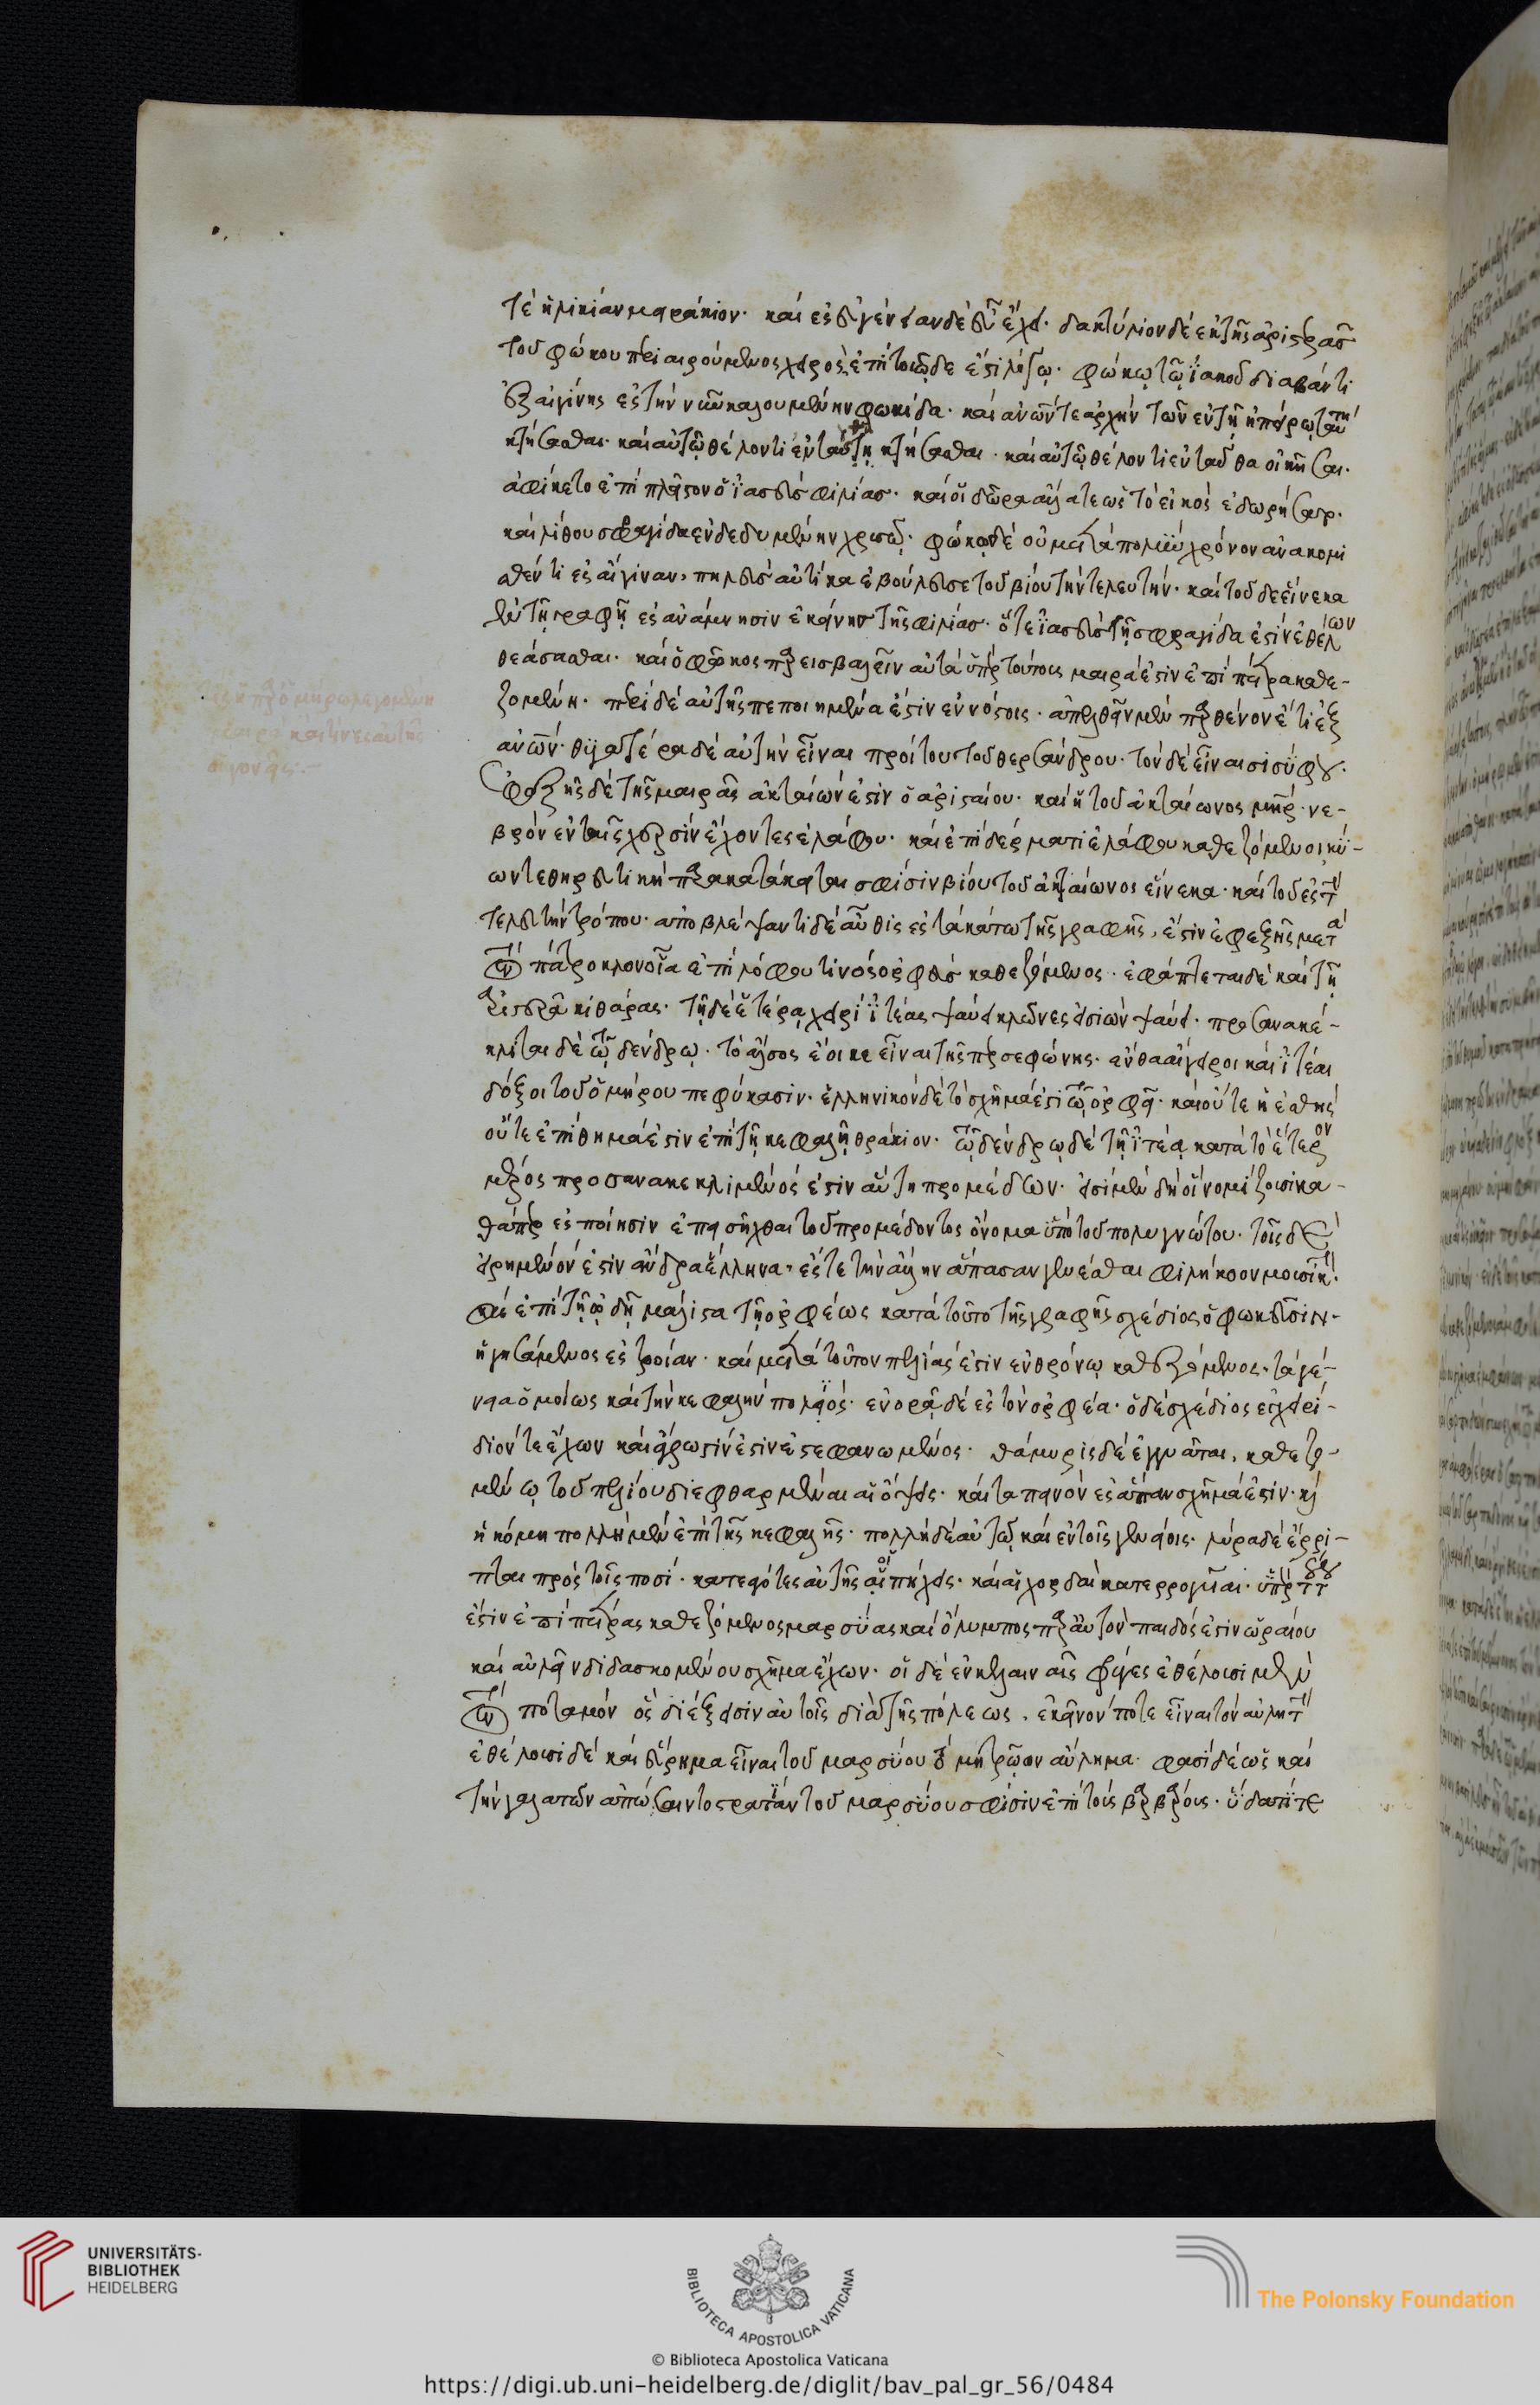 τέ ἡλικίαν μειράκιον· καὶ ἐς εὐγένειαν δὲ εὖ ἔχει· δακτύλιον δὲ ἐκ τῆς ἀριστερᾶς
τοῦ φώκου περιαιρούμενος χειρὸς ἐπὶ τοιῶδε ἐστὶ λόγῳ· φώκῳ τῶ ἰακοῦ διαβάντι
ἐξ αἰγίνης ἐς τὴν νῦν καλουμένην φωκίδα· καὶ ἀνῶν τε ἀρχὴν τῶν ἐν τῆ ἠπείρῳ ταύτη
κτήσασθαι· καὶ αὐτῷ θέλοντι ἐνταύτῃ κτήσασθαι· καὶ αὐτῷ θέλοντι ἐνταῦθα οἰκῆσαι·
ἀφίκετο ἐπὶ πλεῖστον ὁ ἰασεὺς φιλίας· καὶ οἱ δῶρα ἄλλα τε ὡς τὸ εἰκὸς ἐδωρήσατο·
καὶ λίθου σφραγίδα ἐνδεδυμένην χρυσῷ· φώκῳ δὲ οὐ μετὰ πολὺν χρόνον ἀνακομι
σθέντι ἐς αἴγιναν, πηλεὺς αὐτίκα ἐβούλευσε τοῦ βίου τὴν τελευτήν· καὶ τοῦδε εἵνεκα
ἐν τῆ γραφῆ ἐς ἀνάμνησιν ἐκείνης τῆς φιλίας· ὅ τε ἰασεὺς τῆ σφραγίδα ἐστὶν ἐθέλων
θεάσασθαι· καὶ ὁ φῶκος παρεὶς λαβεῖν αὐτά ὑπὲρ τούτοις μαιρά ἐστιν ἐπὶ πέτρα καθε-
ζομένη· περὶ δὲ αὐτῆς πεποιημένα ἐστὶν ἐν νόστοις· ἀπελθεῖν μὲν παρθένον ἔτι ἐξ
ἀνῶν· θυγατέρα δὲ αὐτὴν εἶναι προίτου τοῦ θερσάνδρου· τὸν δὲ εἶναι σισύφου·
ἐφεξῆς δὲ τῆς μαιρᾶς ἀκταίων ἐστὶν ὁ ἀρισταίου· καὶ ἡ τοῦ ἀκταίωνος μήτηρ· νε-
βρὸν ἐν ταῖς χερσὶν ἔχοντες ἐλάφου· καὶ ἐπὶ δέρματι ἐλάφου καθεζόμενοι κύ-
ων τε θηρευτικὴ παρακατάκειται σφίσιν βίου τοῦ ἀκταίωνος εἵνεκα· καὶ τοῦ ἐς τὴν
τελευτὴν τρόπου· ἀποβλέψαντι δὲ αὖθις ἐς τὰ κάτω τῆς γραφῆς, ἐστὶν ἐφεξῆς μετὰ
τὸν πάτροκλον οἷα ἐπὶ λόφου τινὸς ὀρφεὺς καθεζόμενος· ἐφάπτεται δὲ καὶ τῆ
ἀριστερᾷ κιθάρας· τῇ δὲ ἑτέρᾳ χειρὶ ἰτέας ψαύει κλῶνες εἰσὶν ὧν ψαύει· προσανακέ-
κλιται δὲ τῷ δένδρῳ· τὸ ἄλσος ἔοικε εἶναι τῆς περσεφόνης· ἔνθα αἴγειροι καὶ ἰτέαι
δόξῃ τοῦ ὁμήρου πεφύκασιν· ἑλληνικὸν δὲ τὸ σχῆμά ἐστι τῷ ὀρφεῖ· καὶ οὔτε ἡ ἐσθὴς
οὔτε ἐπίθημά ἐστιν ἐπὶ τῇ κεφαλῇ θράκιον· τῷ δένδρῳ δὲ τῇ ἰτέᾳ κατὰ τὸ ἕτερον
μέρος προσανακεκλιμένος ἐστὶν αὕτη προμέδων· εἰσὶ μὲν δὴ οἳ νομίζουσι κα-
θάπερ ἐς ποίησιν ἐπεισῆχθαι τοῦ προμέδοντος ὄνομα ὑπὸ τοῦ πολυγνώτου· τοῖς δὲ
εἰρημένον ἐστὶν ἄνδρα ἕλληνα· ἔς τε τὴν ἄλλην ἅπασαν γενέσθαι φιλήκοον μουσικὴν·
καὶ ἐπὶ τῇ ᾠδῇ μάλιστα τῇ ὀρφέως κατὰ τοῦτο τῆς γραφῆς σχεδίος ὁ φωκεῦσιν
ἡγησάμενος ἐς τροίαν· καὶ μετὰ τοῦτον πελίας ἐστὶν ἐν θρόνῳ καθεζόμενος· τὰ γέ-
νεια ὁμοίως καὶ τὴν κεφαλὴν πολιός· ἐνορᾷ δὲ ἐς τὸν ὀρφέα· ὁ δὲ σχέδιος ἐγχειρί-
διόν τε ἔχων καὶ ἄγρωστίν ἐστιν ἐστεφανωμένος· θάμυρις δὲ ἐγγυᾶται, καθεζο-
μένῳ τοῦ πελίου διεφθαρμέναι αἱ ὄψεις· καὶ ταπεινὸν ἐς ἅπαν σχῆμά ἐστιν· καὶ
ἡ κόμη πολλὴ μὲν ἐπὶ τῆς κεφαλῆς· πολλὴ δὲ αὐτῷ καὶ ἐν τοῖς γενείοις· λύρα δὲ ἔρρι-
πται πρὸς τοῖς ποσί· κατεαγότες αὐτῆς οἱ πήχεις· καὶ αἱ χορδαὶ κατερρογυῖαι· ὑπὲρ τούτου
ἐστὶν ἐπὶ πέτρας καθεζόμενος μαρσύας καὶ ὄλυμπος παρ' αὐτὸν παιδός ἐστιν ὡραίου
καὶ αὐλεῖν διδασκομένου σχῆμα ἔχων· οἱ δὲ ἐν κελαιναῖς φρύγες ἐθέλουσι μὲν
τὸν ποταμὸν ὃς διέξεισιν αὐτοῖς διὰ τῆς πόλεως, ἐκεῖνόν ποτε εἶναι τὸν αὐλητὴν
ἐθέλουσι δὲ καὶ εὕρημα εἶναι τοῦ μαρσύου τὸ μητρῷον αὔλημα· φασὶ δὲ ὡς καὶ
τὴν γαλατῶν ἀπώσαιντο στρατείαν τοῦ μαρσύου σφίσιν ἐπὶ τοὺς βαρβάρους· ὕδατί τε
UNIVERSITÄTS-
BIBLIOTHEK
HEIDELBERG
BIBLIOTECA APOSTOLICA VATICANA
The Polonsky Foundation
© Biblioteca Apostolica Vaticana
https://digi.ub.uni-heidelberg.de/diglit/bav_pal_gr_56/0484